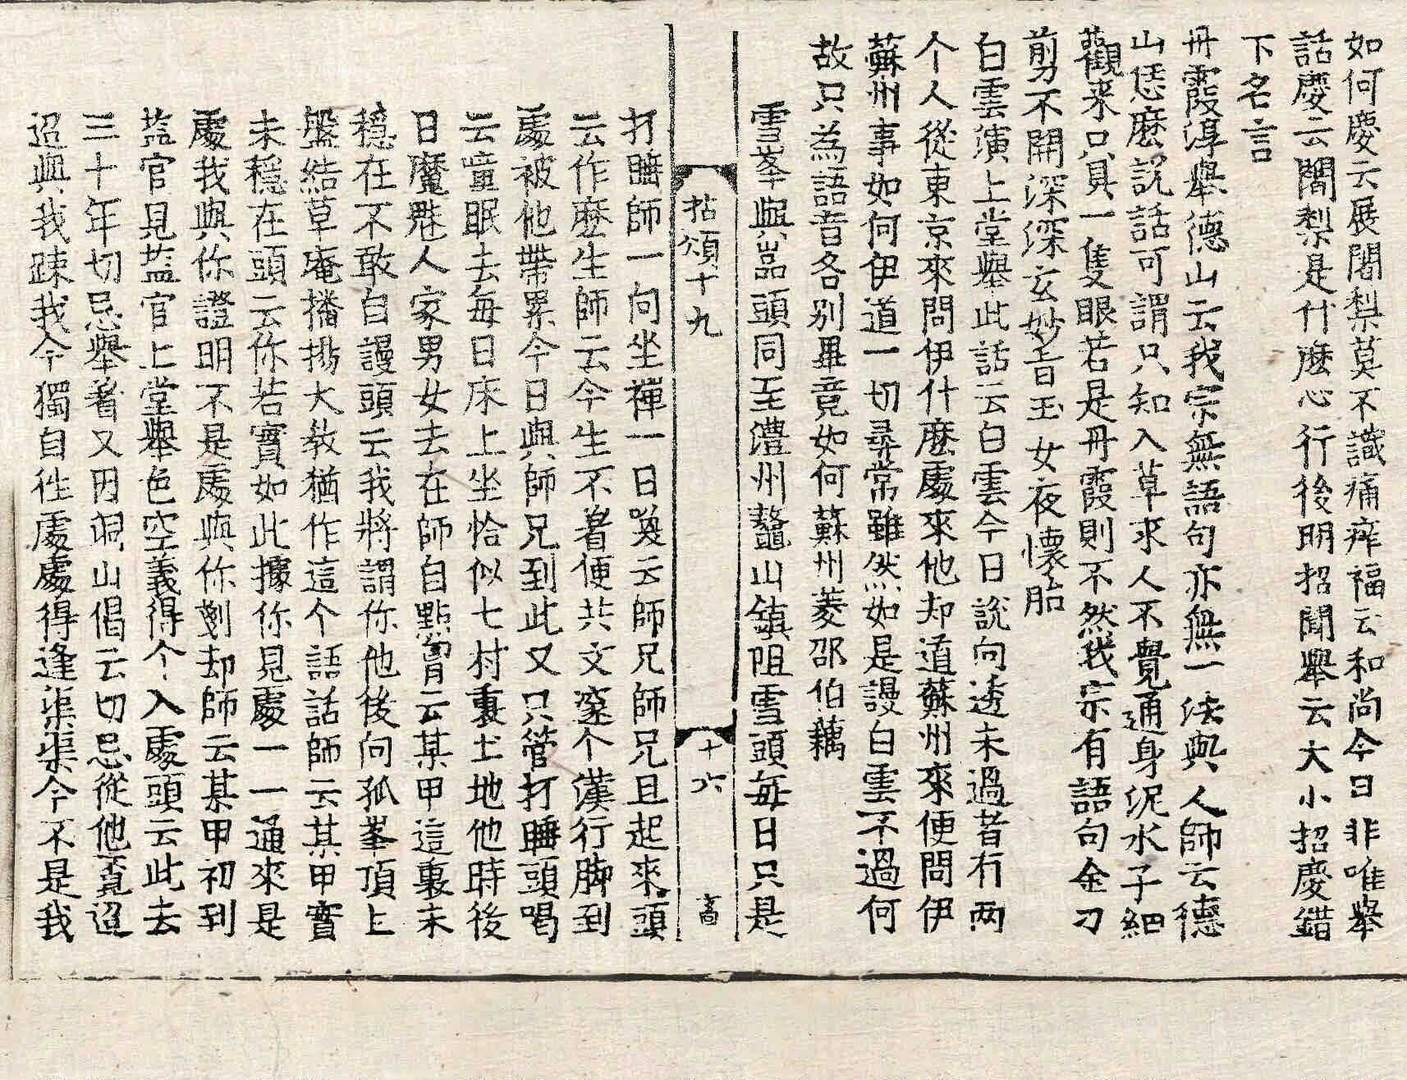 如何慶云展闍梨莫不識痛痒福云和尚今日非唯舉
話慶云闍梨是什麽心行後明招聞舉云大小招慶錯
下名言
丹霞淳舉德山云我宗無語句亦無一法與人師云德
山恁麽說話可謂只知入草求人不覺通身泥水子細
觀来只具一隻眼若是丹霞則不然我宗有語句金刀
剪不開深深玄妙旨玉女夜懷胎
白雲演上堂舉此話云白雲今日說向透未過者有兩
个人從東京來問伊什麽處來他却道蘇州來便問伊
蘇州事如何伊道一切尋常雖然如是謾白雲不過何
故只為語音各别畢竟如何蘇州菱邵伯藕
雪峯與嵓頭同至澧州鼇山鎮阻雪頭每日只是
拈頌十九
十六
高
打睡師一向坐禪一日喚云師兄師兄且起來頭
云作麽生師云今生不着便共文邃个漢行脚到
處被他帶累今日與師兄到此又只管打睡頭喝
云噇眠去每日床上坐恰似七村裏土地他時後
日魔魅人家男女去在師自點胷云某甲這裏未
穩在不敢自謾頭云我將謂你他後向孤峯頂上
盤結草庵播揚大教猶作這个語話師云某甲實
未穩在頭云你若實如此據你見處一一通來是
處我與你證明不是處與你剗却師云某甲初到
塩官見塩官上堂舉色空義得个入處頭云此去
三十年切忌舉着又因洞山偈云切忌從他覔迢
迢與我踈我今獨自往處處得逢渠渠今不是我